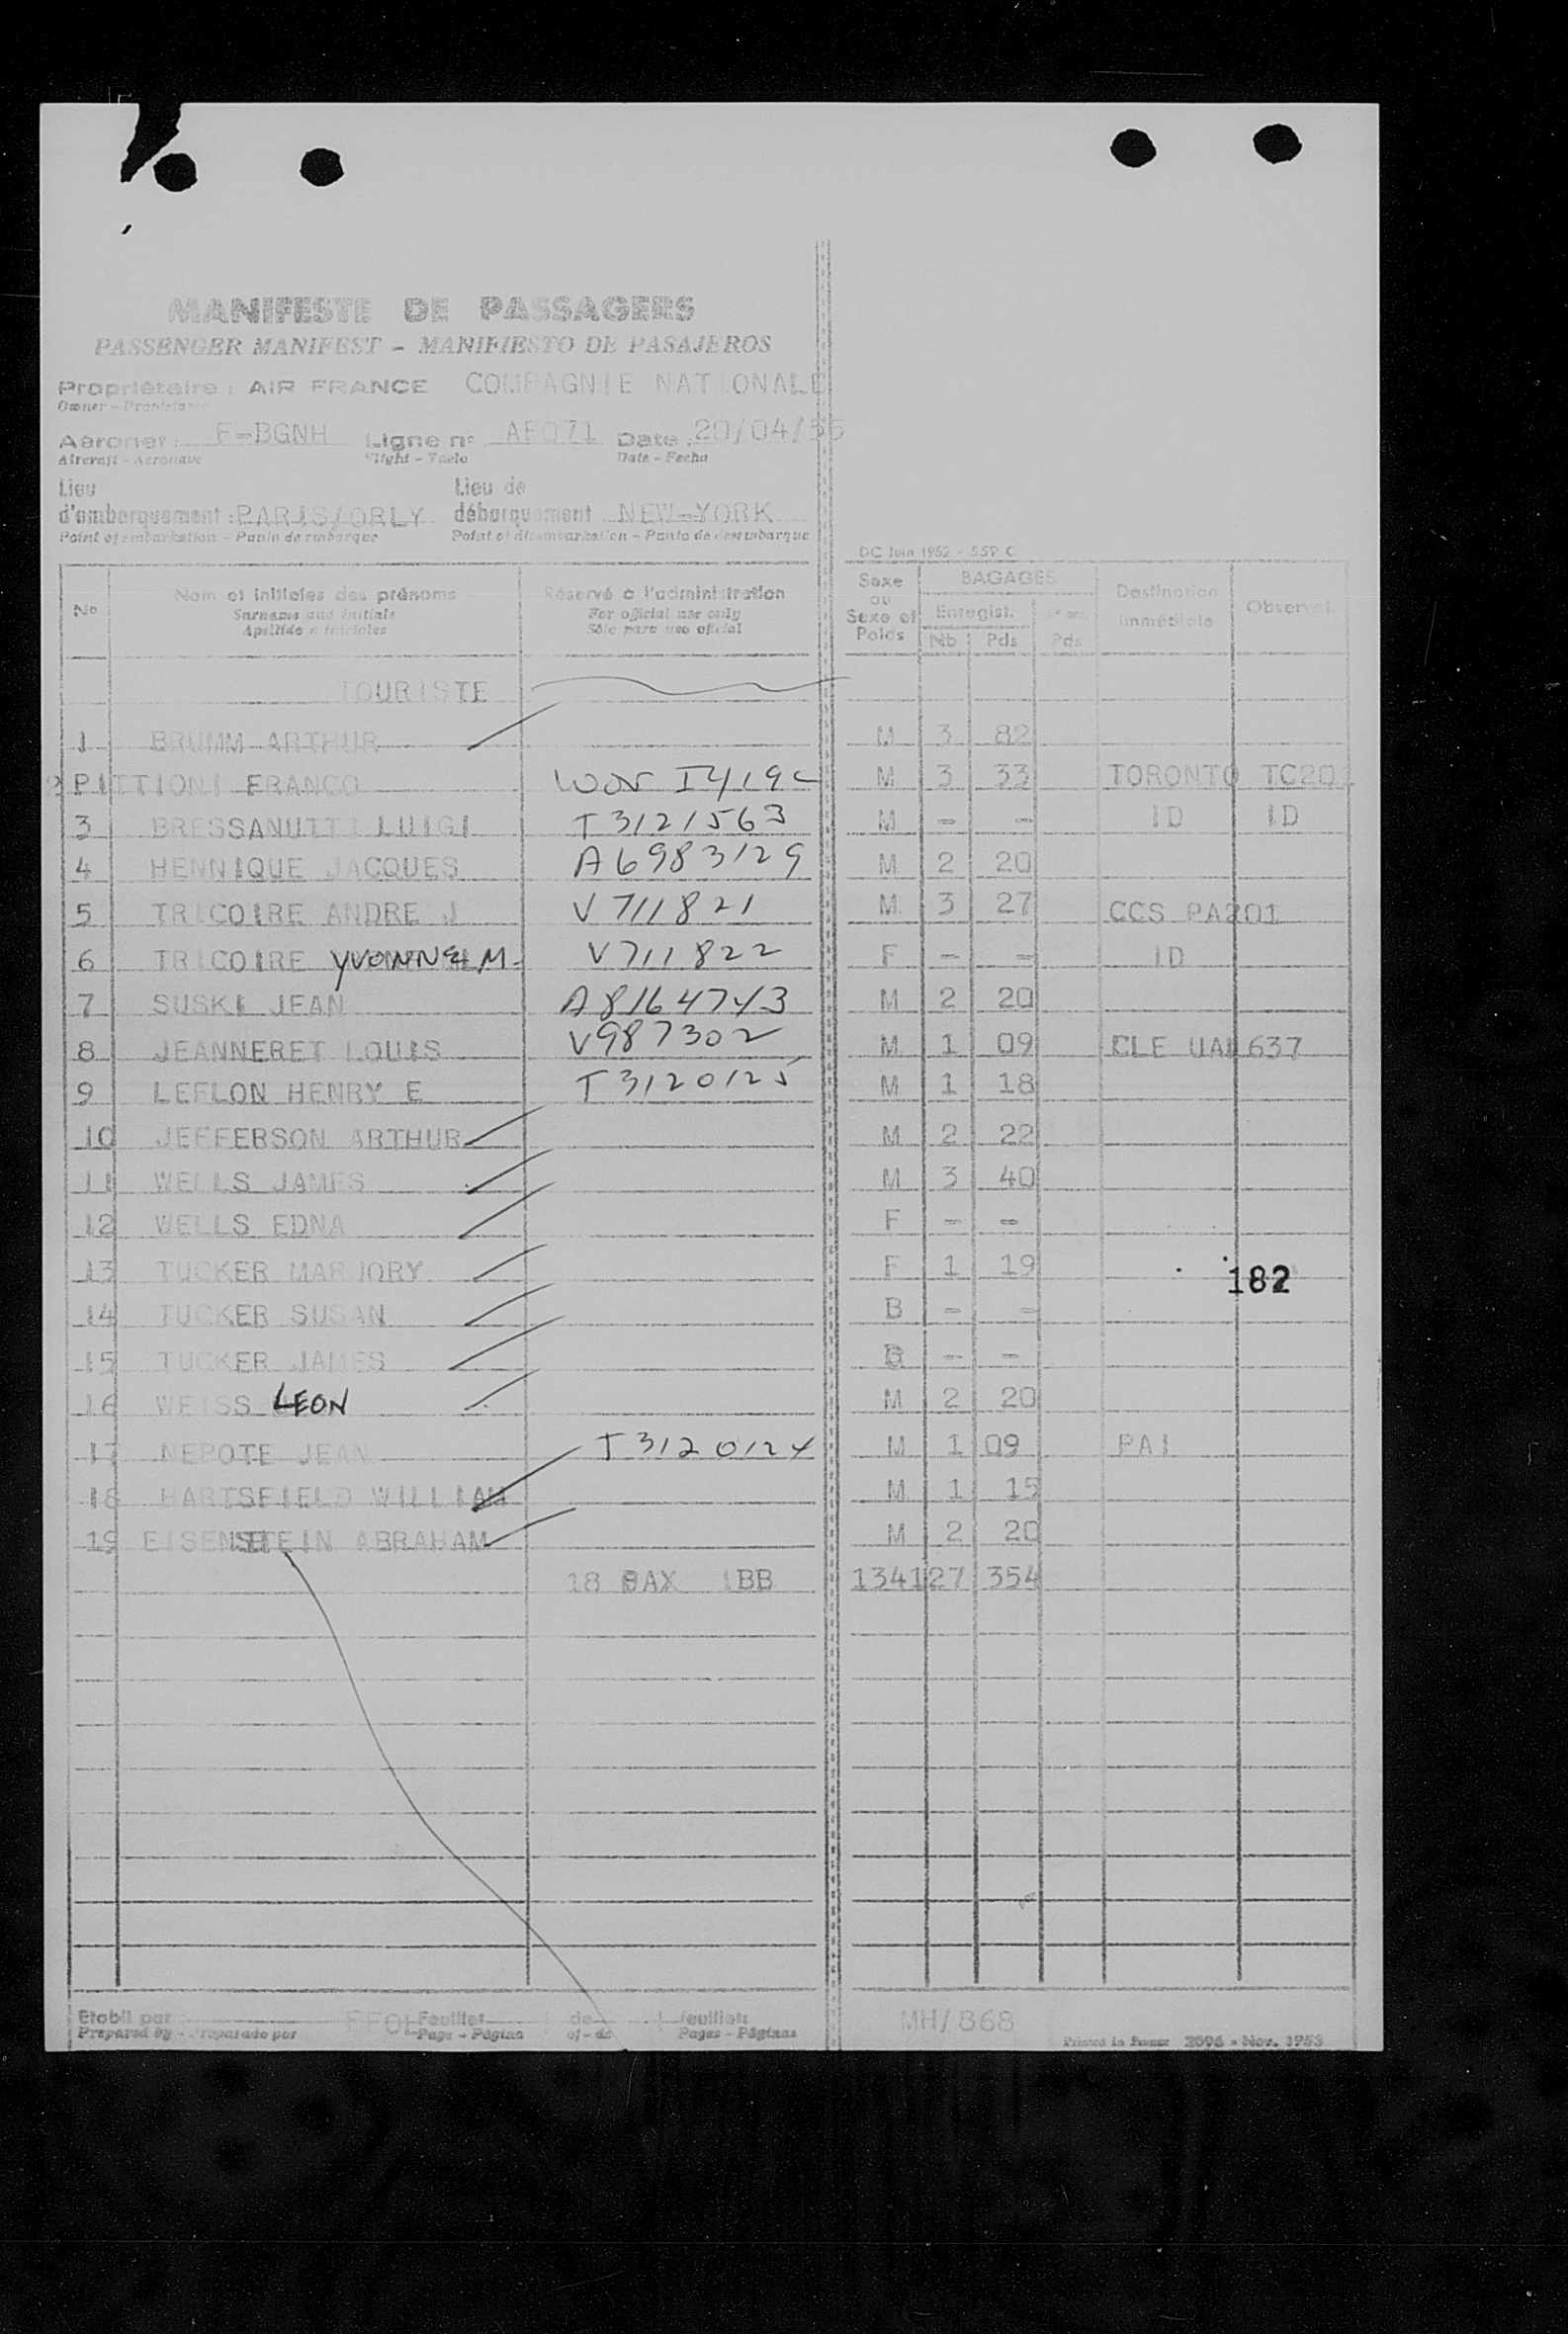 MANIFESTE DE PASSAGERS
PASSENGER MANIFEST - MANIFIESTO DE PASAJEROS
Propriétaire : AIR FRANCE COMPAGNIE NATIONALE
Owner - Propietario
Aéronef : F-BGNH Ligne n° AF071 Date : 20/04/55
Aircraft - Aeronave Flight - Vuelo Date - Fecha
Lieu d'embarquement : PARIS/ORLY Lieu de débarquement NEW-YORK
Point of embarkation - Punto de embarque Point of disembarkation - Punto de desembarque
DC Juin 1952 - 559 C
No Nom et initiales des prénoms Réservé à l'administration Sexe ou Sexe et Poids BAGAGES Destination immédiate Observat.
Surnames and initials For official use only Enregist.
Apellido e iniciales Sólo para uso oficial Nb Pds Pds
TOURISTE
1 BRUMM ARTHUR M 3 82
2 PITTIONI FRANCO M 3 33 TORONTO TC20
3 BRESSANUTTI LUIGI T3121563 M - - ID ID
4 HENNIQUE JACQUES A6983129 M 2 20
5 TRICOIRE ANDRE J V711821 M 3 27 CCS PA201
6 TRICOIRE YVONNE M V711822 F - - ID
7 SUSKI JEAN A8164743 M 2 20
8 JEANNERET LOUIS V987302 M 1 09 CLE UAL637
9 LEFLON HENRY E T3120125 M 1 18
10 JEFFERSON ARTHUR M 2 22
11 WELLS JAMES M 3 40
12 WELLS EDNA F - -
13 TUCKER MARJORY F 1 19
182
14 TUCKER SUSAN B - -
15 TUCKER JAMES B - -
16 WEISS LEON M 2 20
17 NEPOTE JEAN T3120124 M 1 09 PAI
18 HARTSFIELD WILLIAM M 1 15
19 EISENSTEIN ABRAHAM M 2 20
18 PAX 1BB 1341 27 354
Etabli par Feuillet de 1 feuillets MH/868
Prepared by - Preparado por Page - Página of - de Pages - Páginas Printed in France 2096 - Nov. 1953